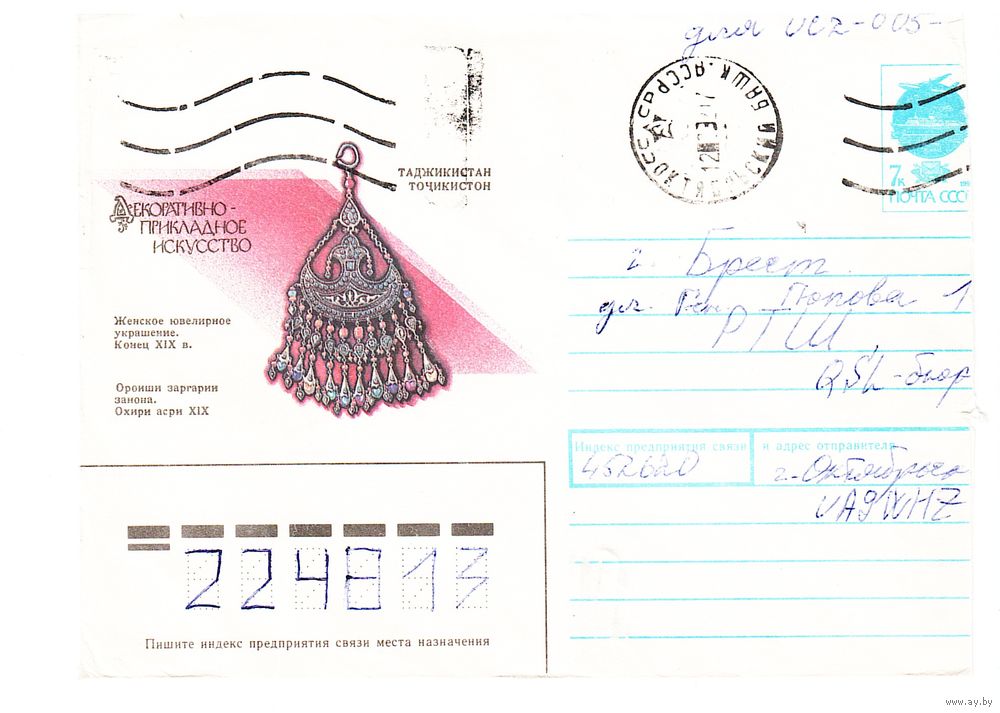 для UC2-005-
ТАДЖИКИСТАН
ТОҶИКИСТОН
ДЕКОРАТИВНО-
ПРИКЛАДНОЕ
ИСКУССТВО
Женское ювелирное
украшение.
Конец XIX в.
Ороиши заргарии
занона.
Охири асри XIX
7к
ПОЧТА СССР
г. Брест
ул. Ген. Попова 1
РТШ
QSL-бюр
Индекс предприятия связи и адрес отправителя
452620 г. Октябрьск
UA9WHZ
224813
Пишите индекс предприятия связи места назначения
www.ay.by